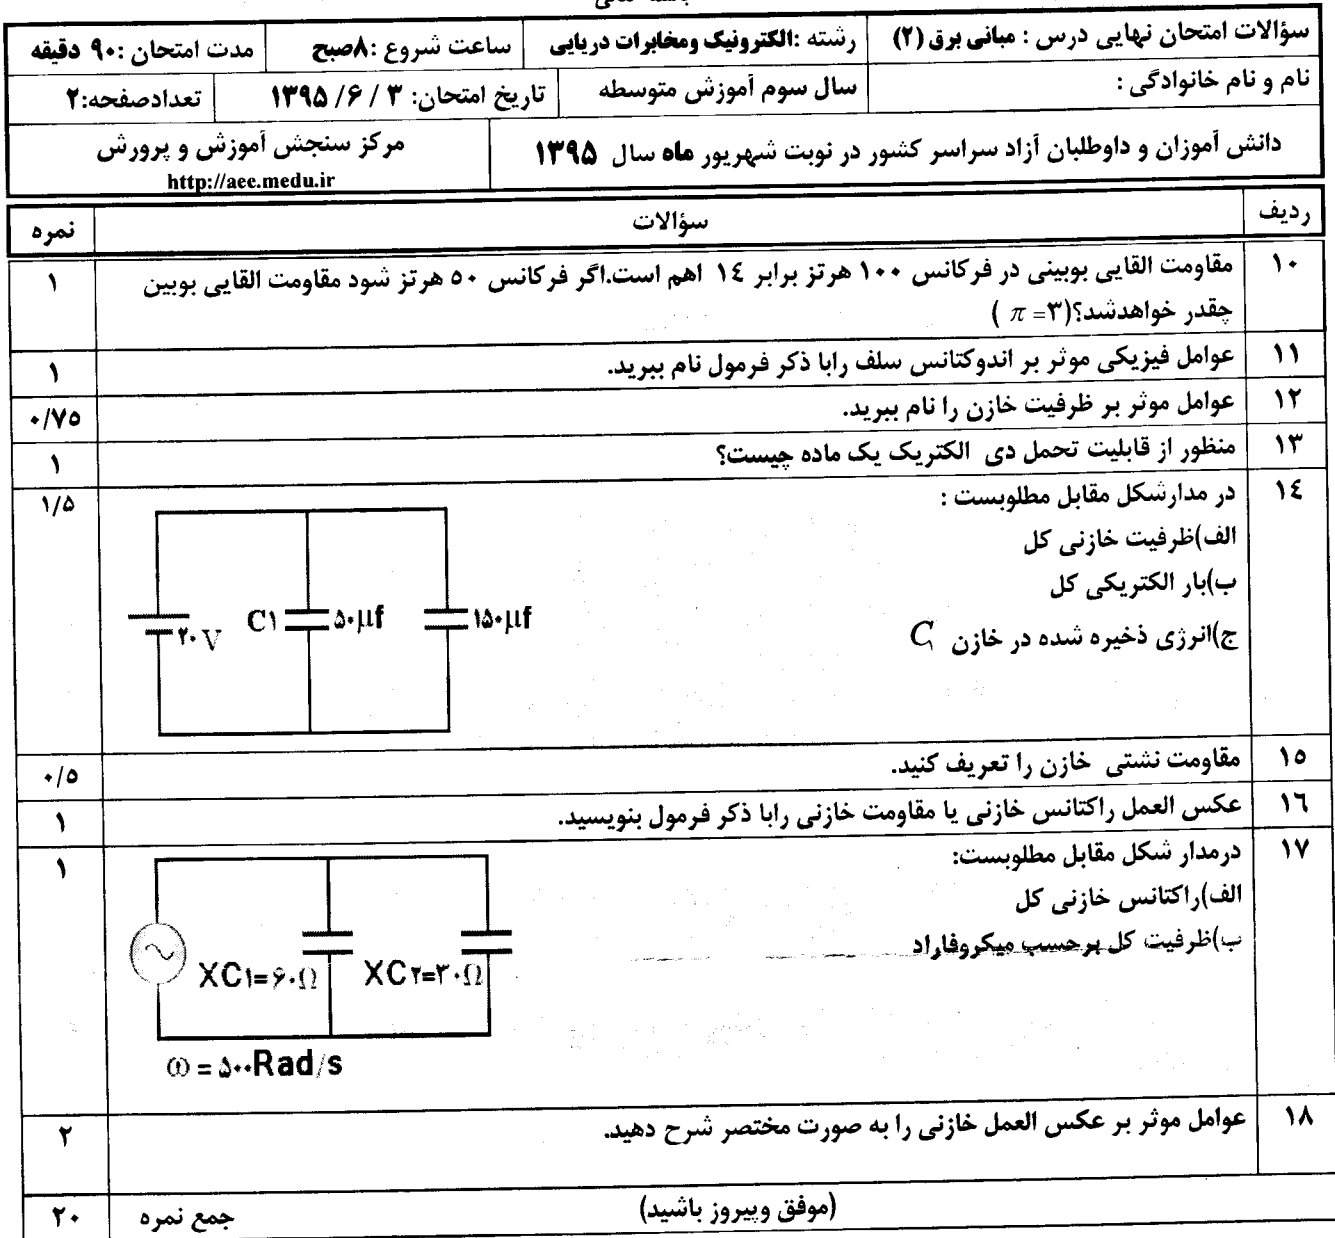 سؤالات امتحان نهایی درس : مبانی برق (۲) رشته :الکترونیک ومخابرات دریایی ساعت شروع :۸صبح مدت امتحان :۹۰ دقیقه
نام و نام خانوادگی : سال سوم آموزش متوسطه تاریخ امتحان: ۳ / ۶/ ۱۳۹۵ تعدادصفحه:۲
دانش آموزان و داوطلبان آزاد سراسر کشور در نوبت شهریور ماه سال ۱۳۹۵ مرکز سنجش آموزش و پرورش
http://aee.medu.ir
ردیف سؤالات نمره
۱۰ مقاومت القایی بوبینی در فرکانس ۱۰۰ هرتز برابر ۱٤ اهم است.اگر فرکانس ۵۰ هرتز شود مقاومت القایی بوبین ۱
چقدر خواهدشد؟(۳= π )
۱۱ عوامل فیزیکی موثر بر اندوکتانس سلف رابا ذکر فرمول نام ببرید. ۱
۱۲ عوامل موثر بر ظرفیت خازن را نام ببرید. ۰/۷۵
۱۳ منظور از قابلیت تحمل دی الکتریک یک ماده چیست؟ ۱
۱٤ در مدارشکل مقابل مطلوبست : ۱/۵
الف)ظرفیت خازنی کل
ب)بار الکتریکی کل
ج)انرژی ذخیره شده در خازن C۱
۲۰V C۱ ۵۰μf ۱۵۰μf
۱۵ مقاومت نشتی خازن را تعریف کنید. ۰/۵
۱٦ عکس العمل راکتانس خازنی یا مقاومت خازنی رابا ذکر فرمول بنویسید. ۱
۱۷ درمدار شکل مقابل مطلوبست: ۱
الف)راکتانس خازنی کل
ب)ظرفیت کل برحسب میکروفاراد
XC۱=۶۰Ω XC۲=۳۰Ω
ω = ۵۰۰Rad/s
۱۸ عوامل موثر بر عکس العمل خازنی را به صورت مختصر شرح دهید. ۲
(موفق وپیروز باشید) جمع نمره ۲۰